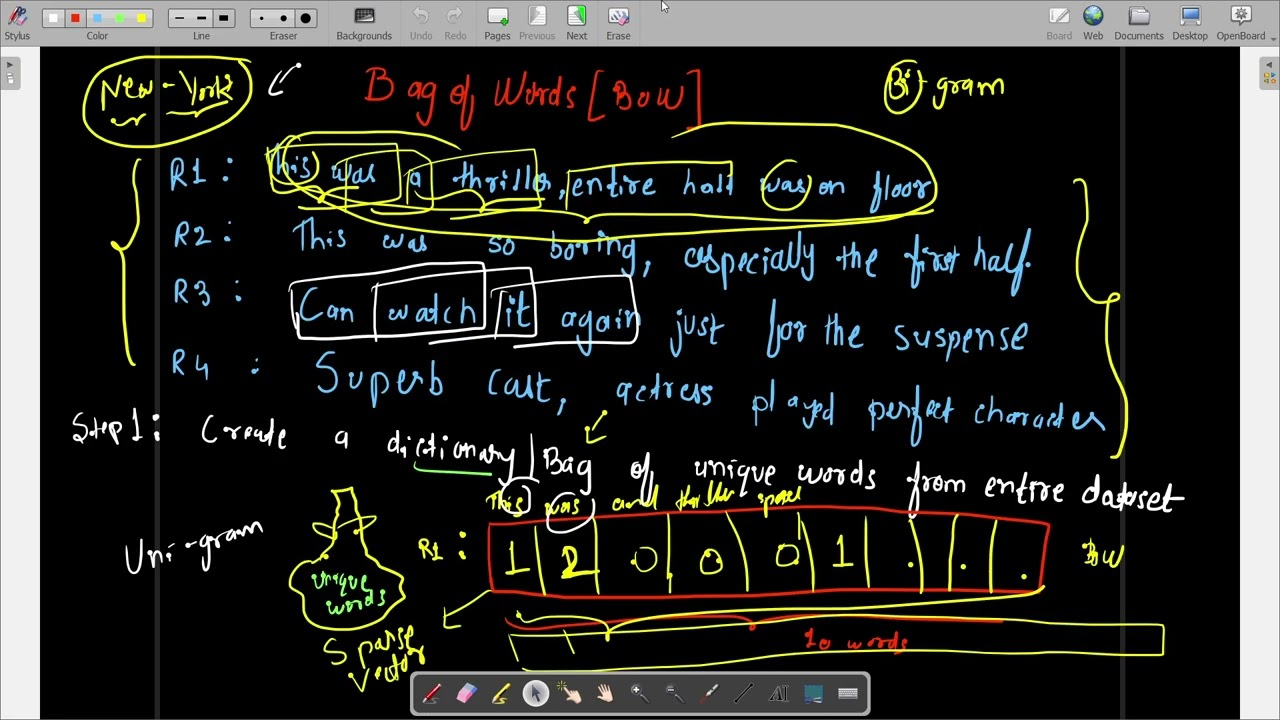 Stylus
Color
Line
Eraser
Backgrounds
Undo
Redo
Pages
Previous
Next
Erase
Board
Web
Documents
Desktop
OpenBoard
New-York
Bag of Words [BOW]
Bi-gram
R1: This was a thriller, entire half was on floor
R2: This was so boring, especially the first half.
R3: Can watch it again just for the suspense
R4: Superb cast, actress played perfect character
Step1: Create a dictionary | Bag of unique words from entire dataset
This was and thriller
Uni-gram
R1: 1 2 0 0 0 1 . . .
unique words
Sparse vector
10 words